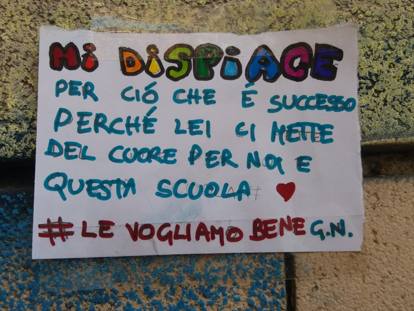 MI DISPIACE
PER CIÓ CHE É SUCCESSO
PERCHÉ LEI CI METTE
DEL CUORE PER NOI E
QUESTA SCUOLA
#LE VOGLIAMO BENE G.N.